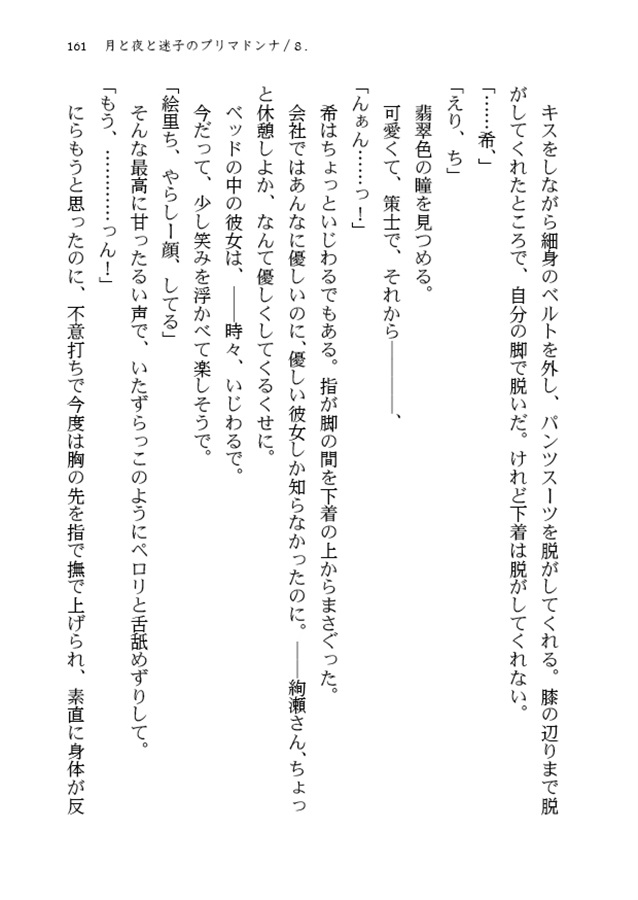 161　月と夜と迷子のプリマドンナ／8.
　キスをしながら細身のベルトを外し、パンツスーツを脱がしてくれる。膝の辺りまで脱
がしてくれたところで、自分の脚で脱いだ。けれど下着は脱がしてくれない。
「……希、」
「えり、ち」
　翡翠色の瞳を見つめる。
　可愛くて、策士で、それから―――、
「んぁん……っ！」
　希はちょっといじわるでもある。指が脚の間を下着の上からまさぐった。
　会社ではあんなに優しいのに、優しい彼女しか知らなかったのに。――絢瀬さん、ちょっ
と休憩しよか、なんて優しくしてくるくせに。
　ベッドの中の彼女は、――時々、いじわるで。
　今だって、少し笑みを浮かべて楽しそうで。
「絵里ち、やらしー顔、してる」
　そんな最高に甘ったるい声で、いたずらっこのようにペロリと舌舐めずりして。
「もう、…………っん！」
　にらもうと思ったのに、不意打ちで今度は胸の先を指で撫で上げられ、素直に身体が反